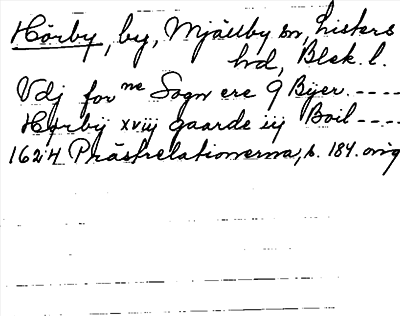 Hörby, by, Mjällby sn, Listers
hd, Blek. l.
Udj for ne Sogn ere 9 Byer. ----
Hørbÿ xviij gaarde iij Boil ----
1624 Prästrelationerna, s. 184. orig